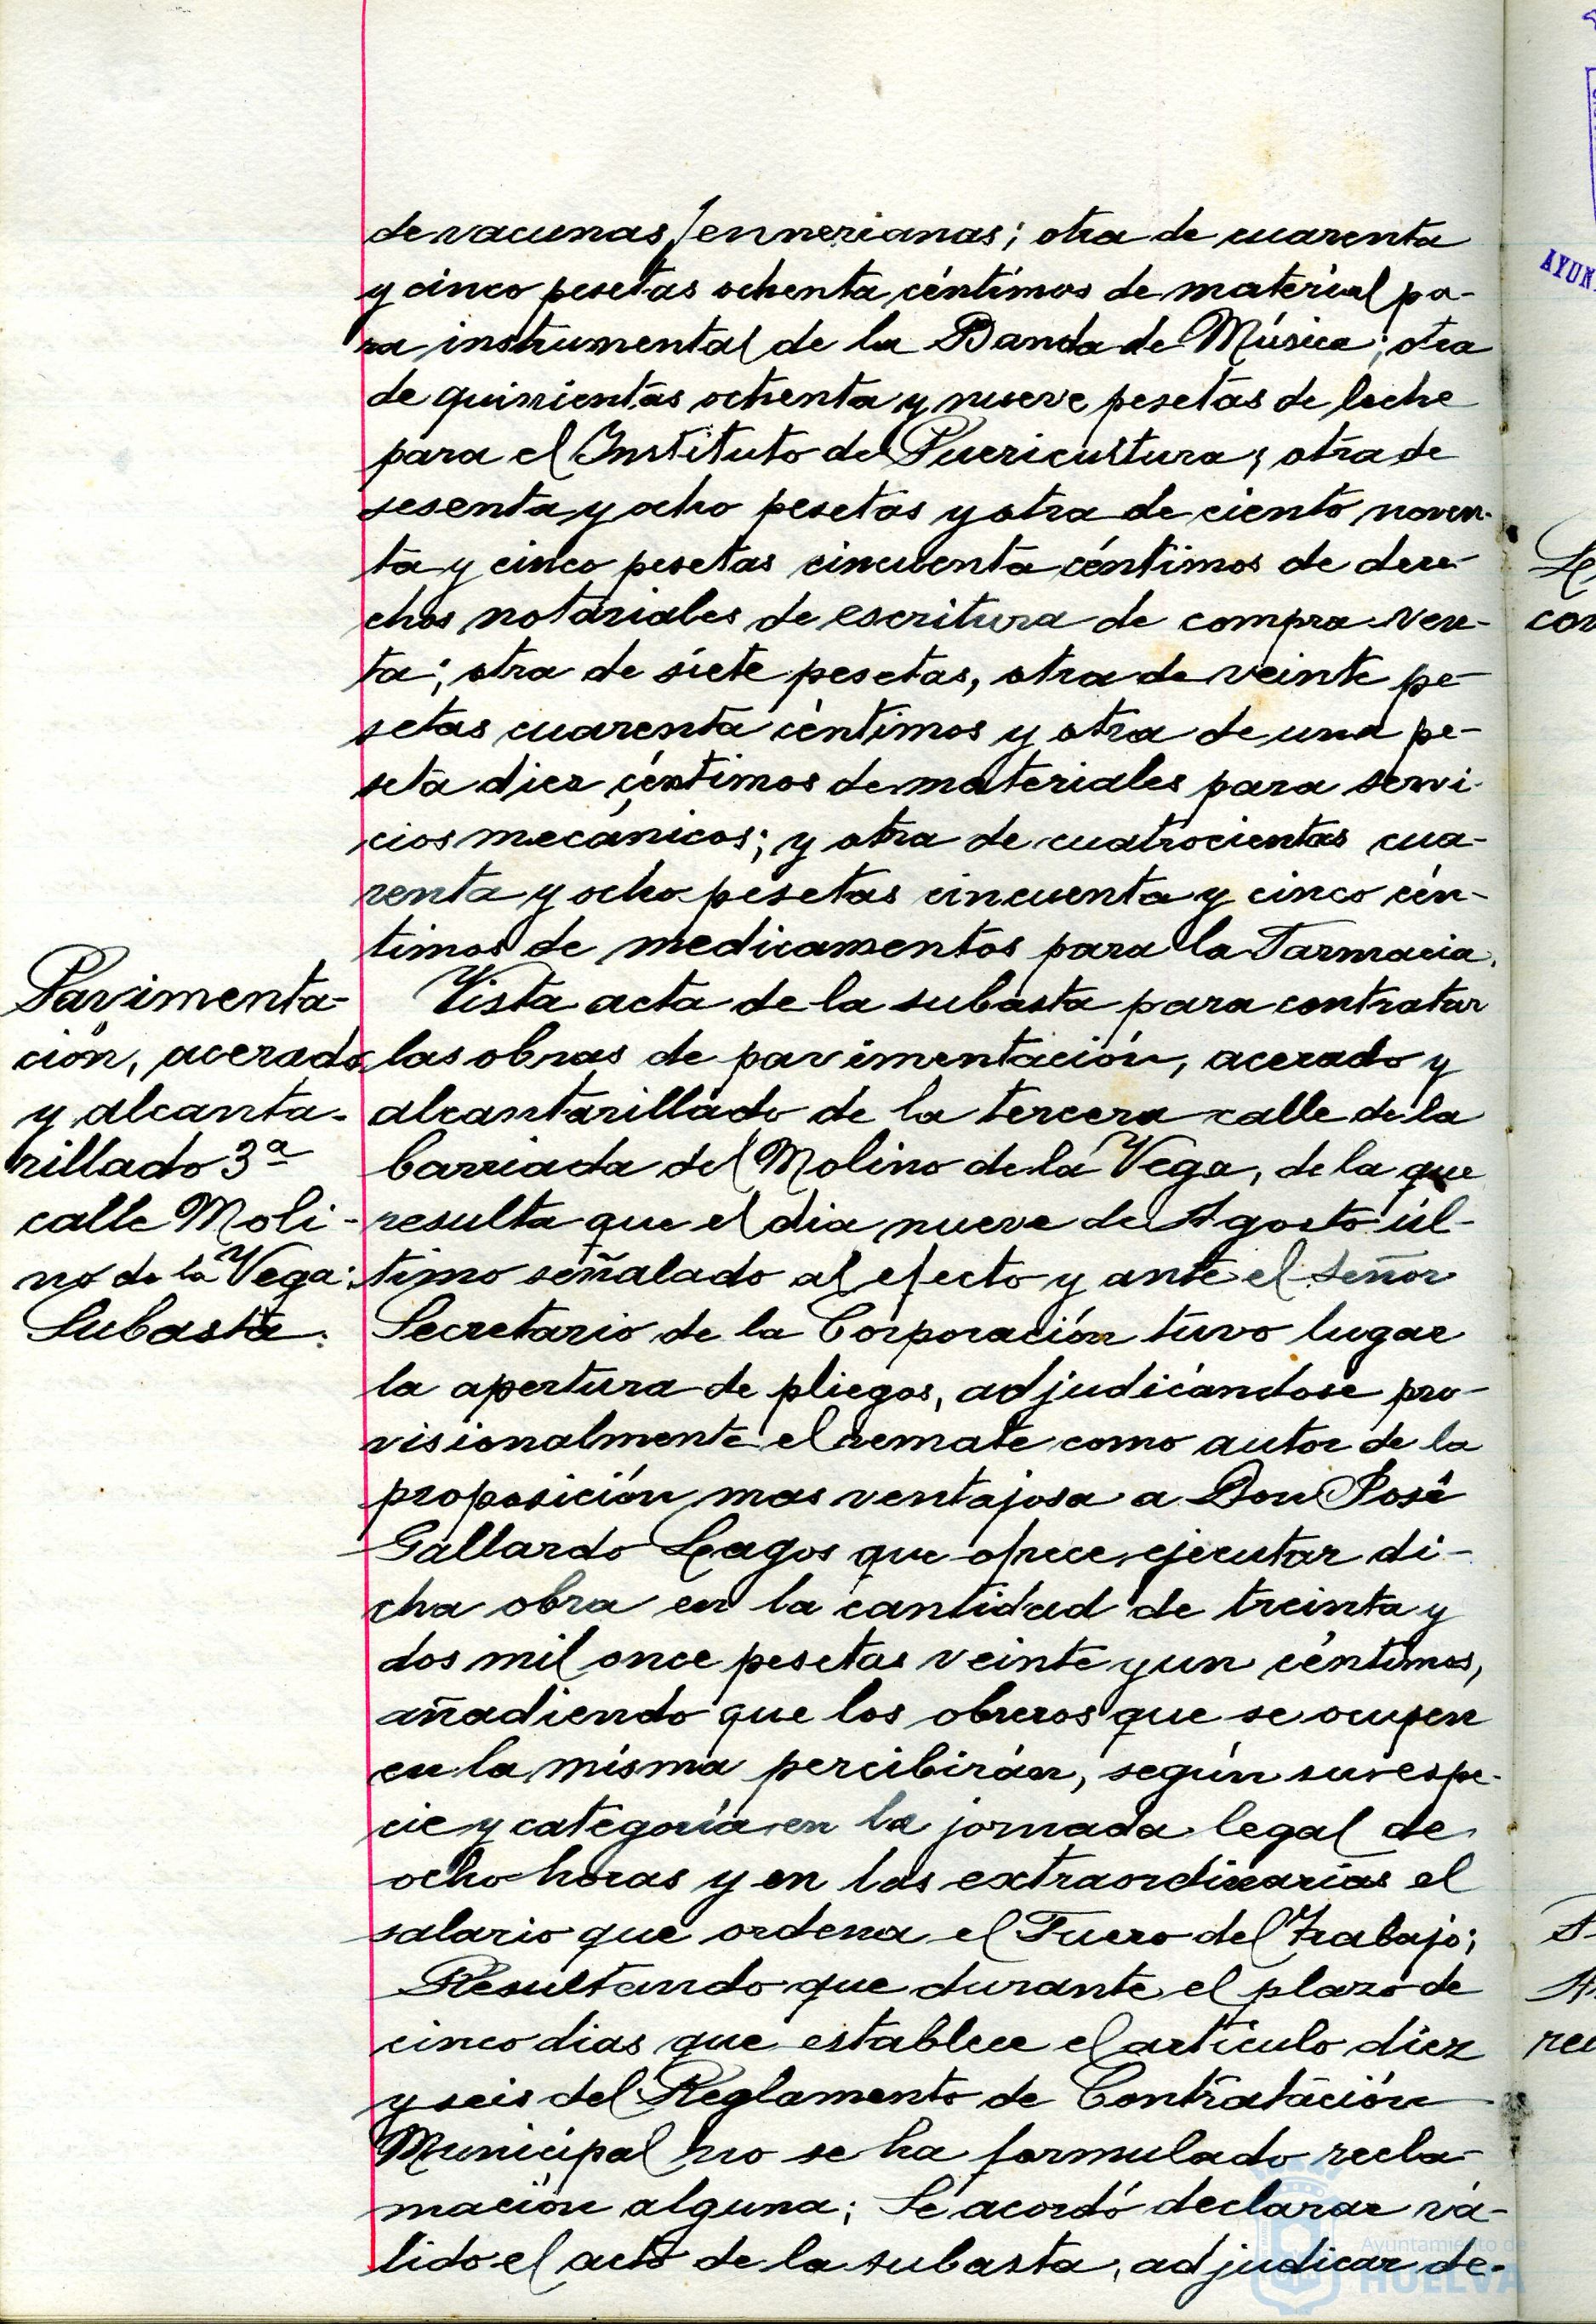 de vacunas Jennerianas; otra de cuarenta
y cinco pesetas ochenta céntimos de material pa-
ra instrumental de la Banda de Música; otra
de quinientas ochenta y nueve pesetas de leche
para el Instituto de Puericultura; otra de
sesenta y ocho pesetas y otra de ciento noven-
ta y cinco pesetas cincuenta céntimos de dere-
chos notariales de escritura de compra-ven-
ta; otra de siete pesetas, otra de veinte pe-
setas cuarenta céntimos y otra de una pe-
seta diez céntimos de materiales para servi-
cios mecánicos; y otra de cuatrocientas cua-
renta y ocho pesetas cincuenta y cinco cén-
timos de medicamentos para la Farmacia.
Pavimenta-
ción, acerado
y alcanta-
rillado 3ª
calle Moli-
no de la Vega:
Subasta.
Vista acta de la subasta para contratar
las obras de pavimentación, acerado y
alcantarillado de la tercera calle de la
barriada del Molino de la Vega, de la que
resulta que el dia nueve de Agosto úl-
timo señalado al efecto y ante el Señor
Secretario de la Corporación tuvo lugar
la apertura de pliegos, adjudicándose pro-
visionalmente el remate como autor de la
proposición mas ventajosa a Don José
Gallardo Lagos que ofrece ejecutar di-
cha obra en la cantidad de treinta y
dos mil once pesetas veinte y un céntimos,
añadiendo que los obreros que se ocupen
en la misma percibirán, según su espe-
cie y categoría en la jornada legal de
ocho horas y en las extraordinarias el
salario que ordena el Fuero del Trabajo;
Resultando que durante el plazo de
cinco dias que establece el artículo diez
y seis del Reglamento de Contratación
Municipal no se ha formulado recla-
mación alguna; Se acordó declarar vá-
lido el acto de la subasta, adjudicar de-
AYUN
Le
con
A
rec
Ayuntamiento de
HUELVA